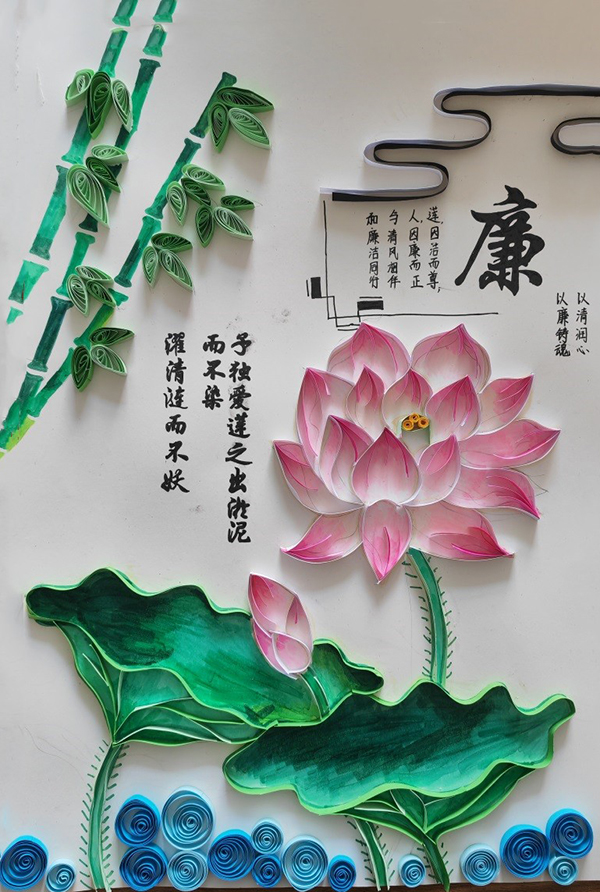 廉
以清润心
以廉铸魂
莲,因洁而尊,
人,因廉而正
与清风相伴
和廉洁同行
予独爱莲之出淤泥
而不染
濯清涟而不妖